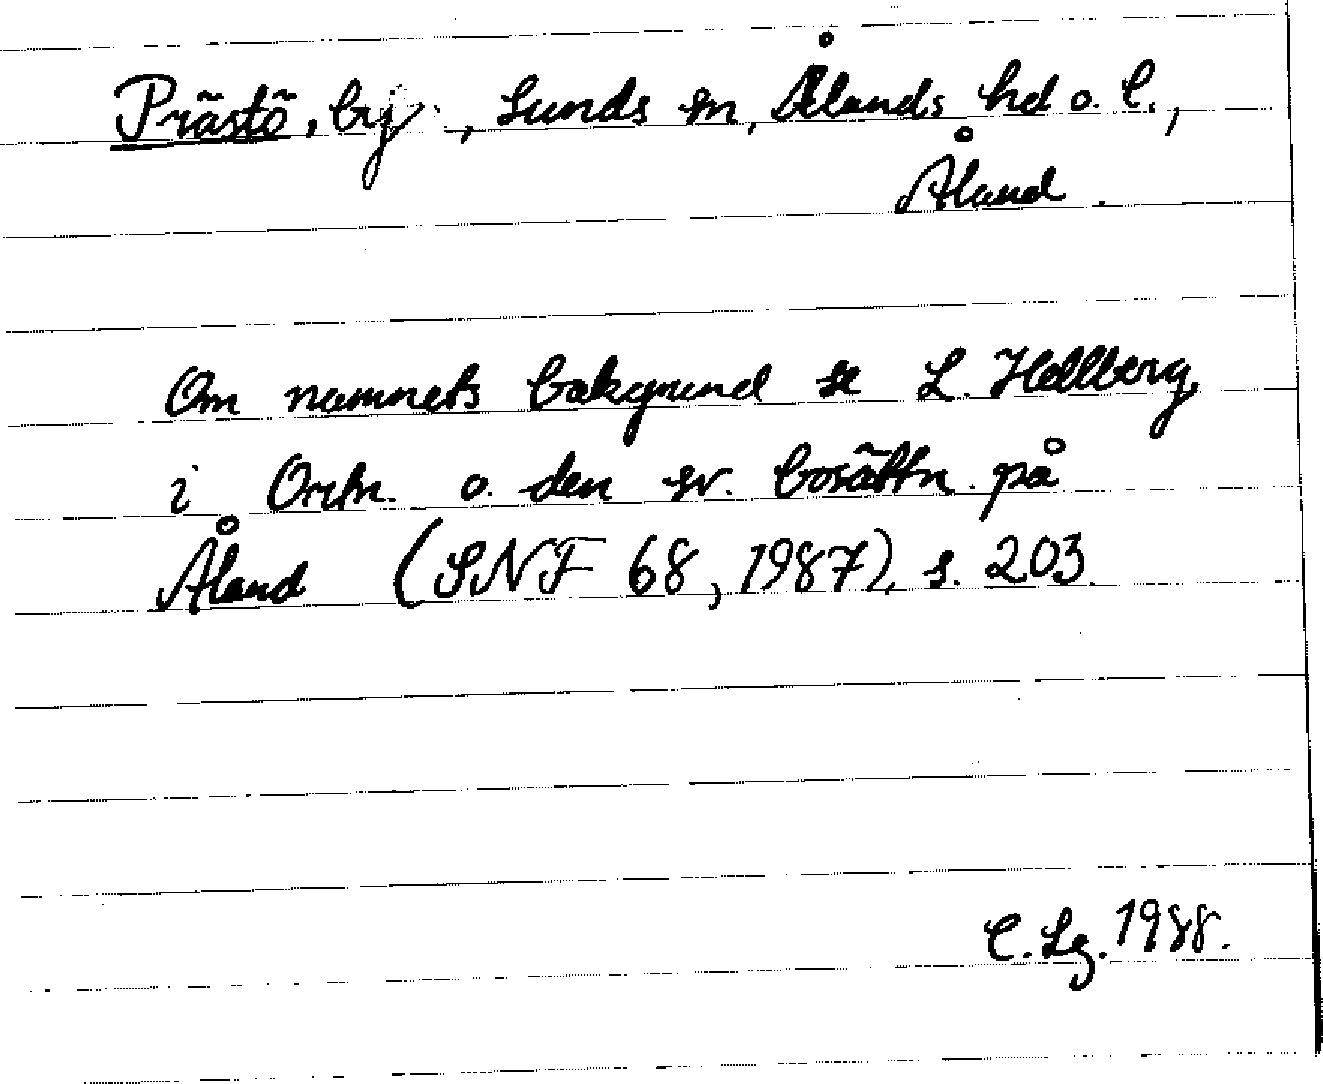 Prästö, by, Sunds sn, Ålands hd o. l.,
Åland.
Om namnets bakgrund se L. Hellberg,
i Ortn. o. den sv. bosättn. på
Åland (SNF 68, 1987), s. 203.
C. Lg. 1988.